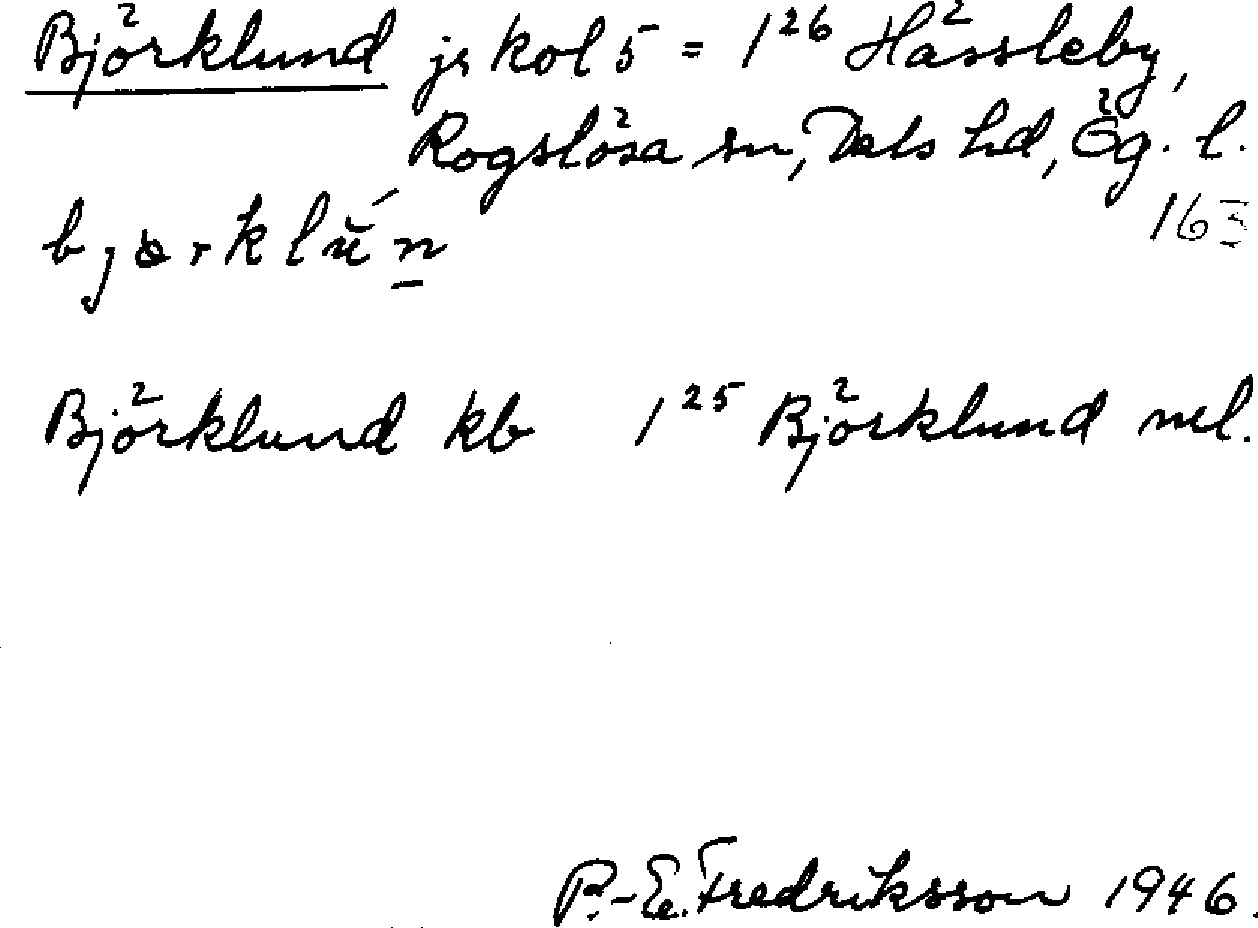 Björklund js kol 5 = 1²⁶ Hässleby,
Rogslösa sn, Dals hd, Ög. l.
163
Björklund kb 1²⁵ Björklund nel.
P.-E. Fredriksson 1946.